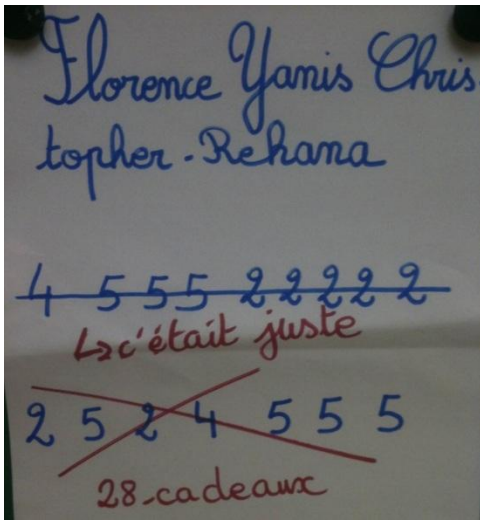 Florence Yanis Chris
topher-Rehana
4 5 5 5 2 2 2 2 2
↳ c'était juste
2 5 2 4 5 5 5
28-cadeaux